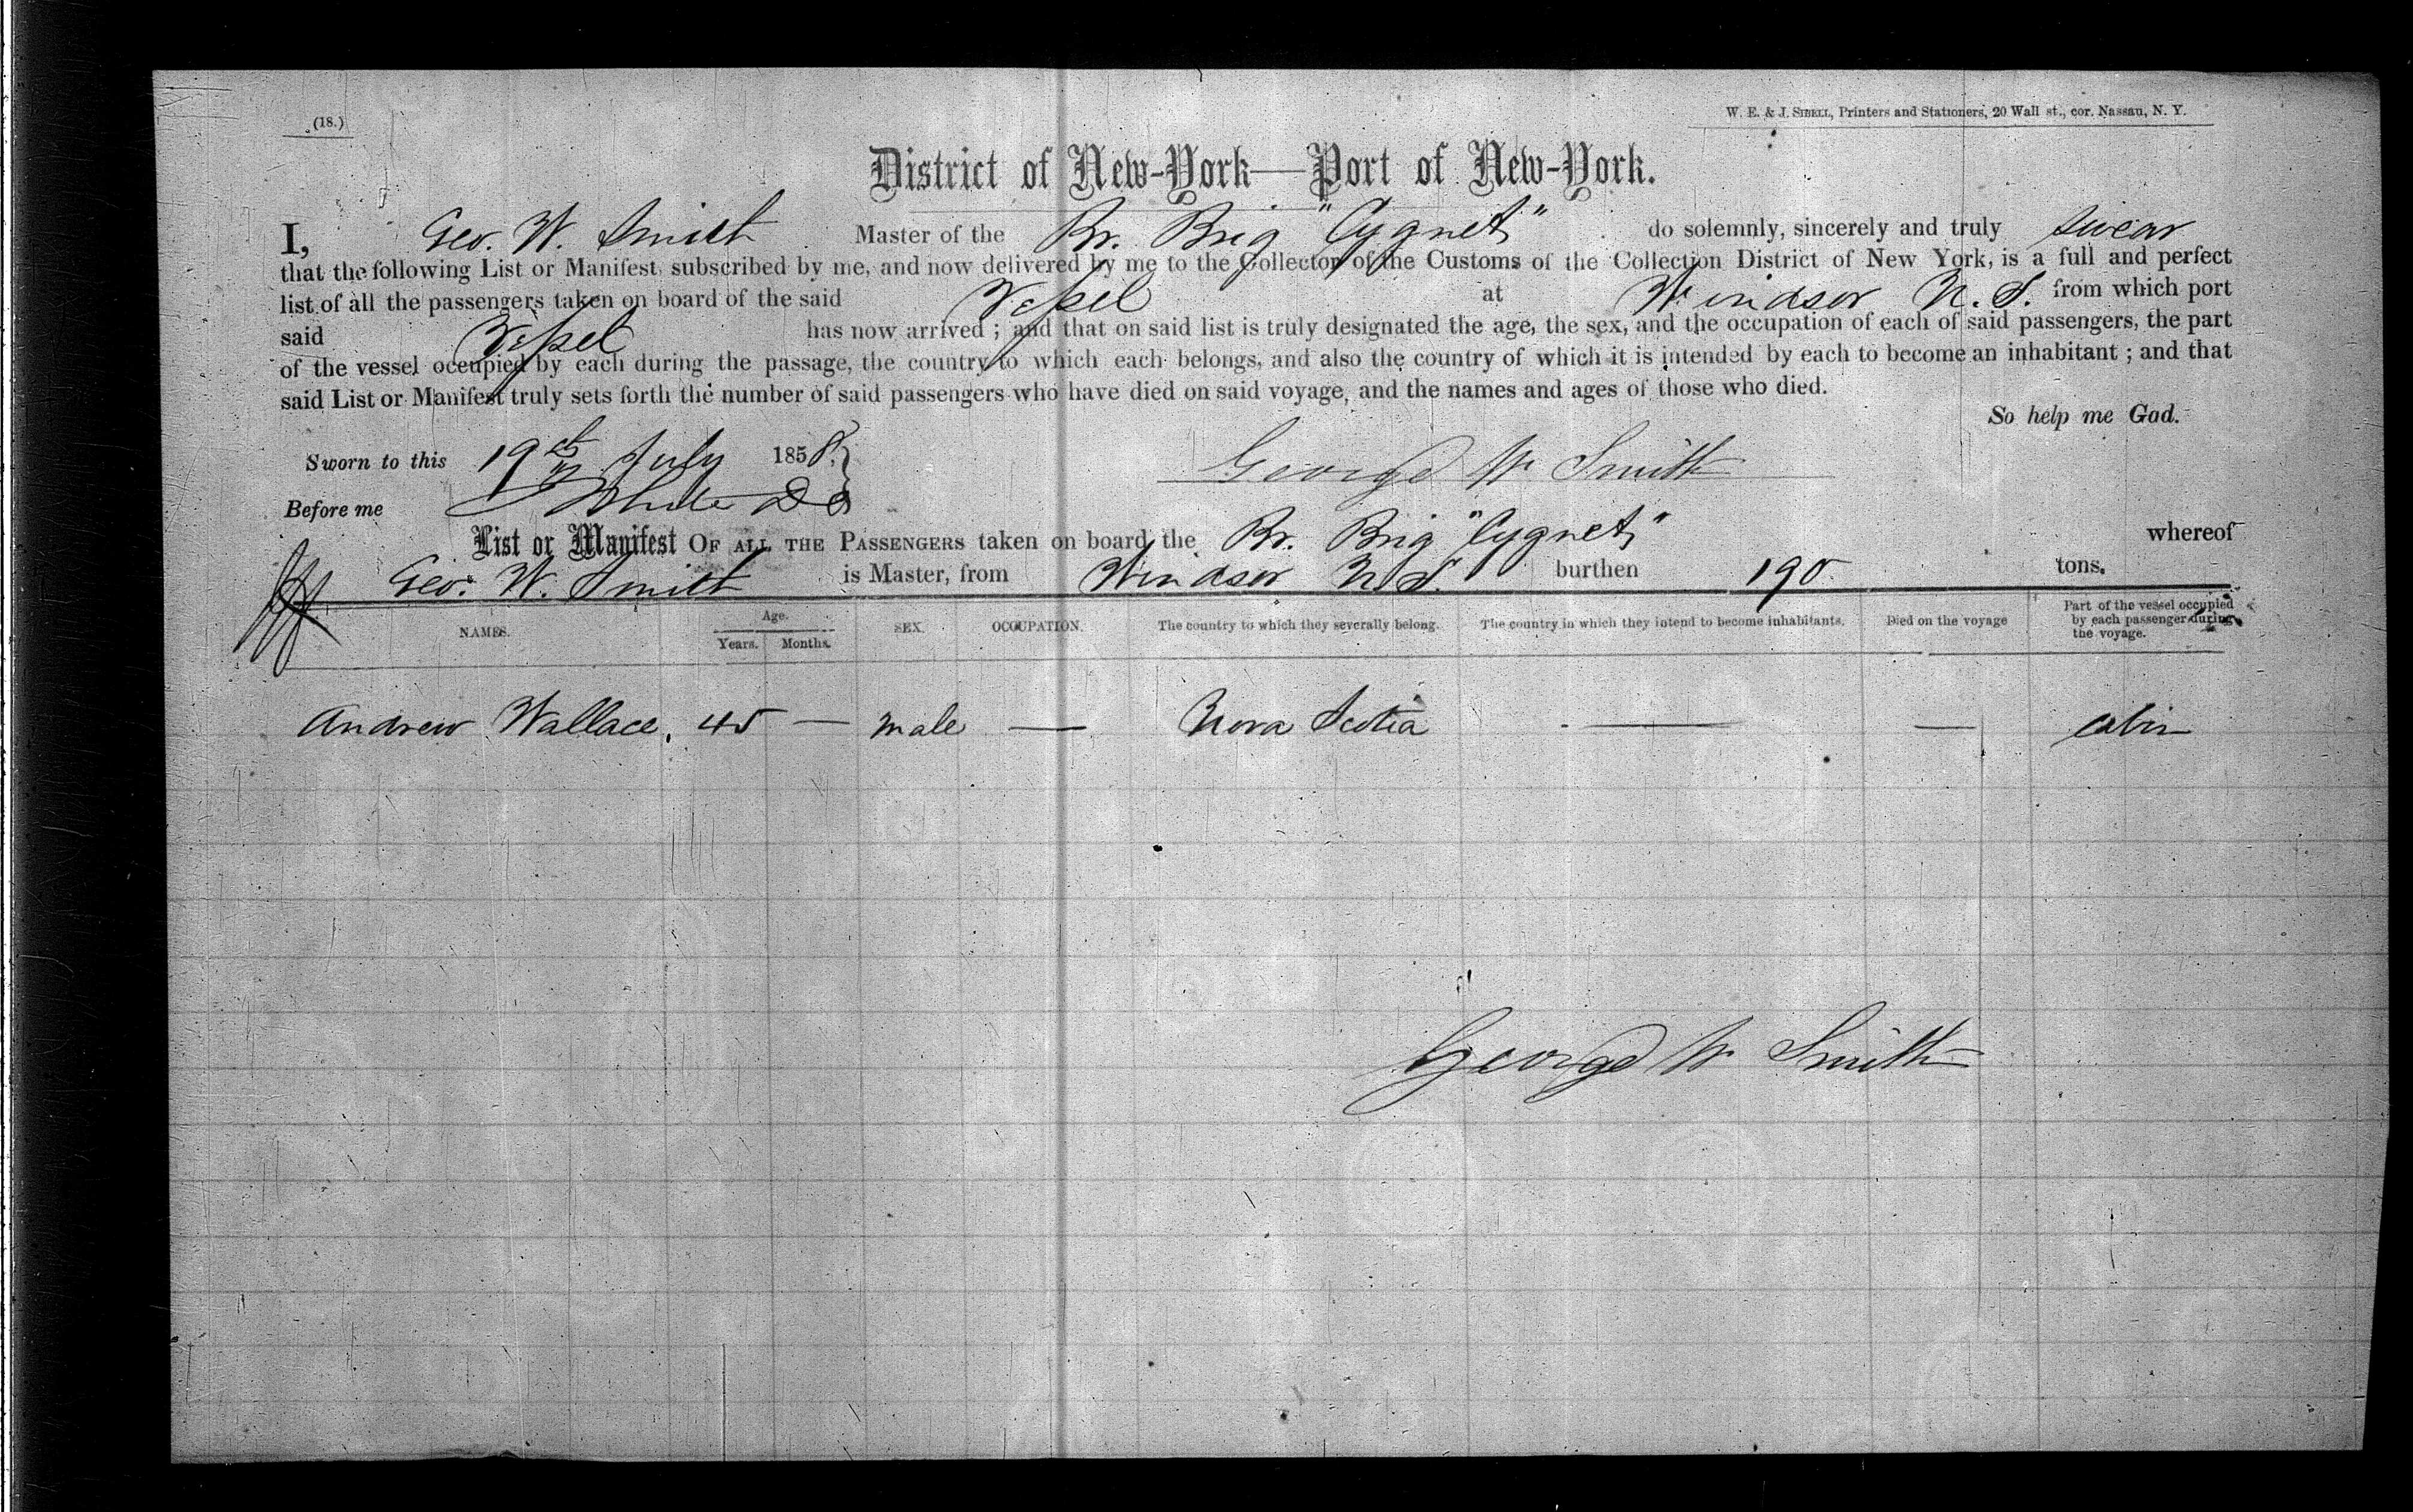 (18.)
W. E. & J. SIBELL, Printers and Stationers, 20 Wall st., cor. Nassau, N. Y.
District of New-York—Port of New-York.
I, Geo. W. Smith Master of the Br. Brig "Cygnet" do solemnly, sincerely and truly swear
that the following List or Manifest, subscribed by me, and now delivered by me to the Collector of the Customs of the Collection District of New York, is a full and perfect
list of all the passengers taken on board of the said Vessel at Windsor N. S. from which port
said Vessel has now arrived; and that on said list is truly designated the age, the sex, and the occupation of each of said passengers, the part
of the vessel occupied by each during the passage, the country to which each belongs, and also the country of which it is intended by each to become an inhabitant; and that
said List or Manifest truly sets forth the number of said passengers who have died on said voyage, and the names and ages of those who died.
So help me God.
Sworn to this 19th July 1858.
George W Smith
Before me White
List or Manifest OF ALL THE PASSENGERS taken on board the Br. Brig "Cygnet" whereof
Geo. W. Smith is Master, from Windsor N. S. burthen 190 tons.
NAMES. Age. Years. Months. SEX. OCCUPATION. The country to which they severally belong. The country in which they intend to become inhabitants. Died on the voyage Part of the vessel occupied by each passenger during the voyage.
Andrew Wallace, 45 — male — Nova Scotia — — cabin
George W Smith